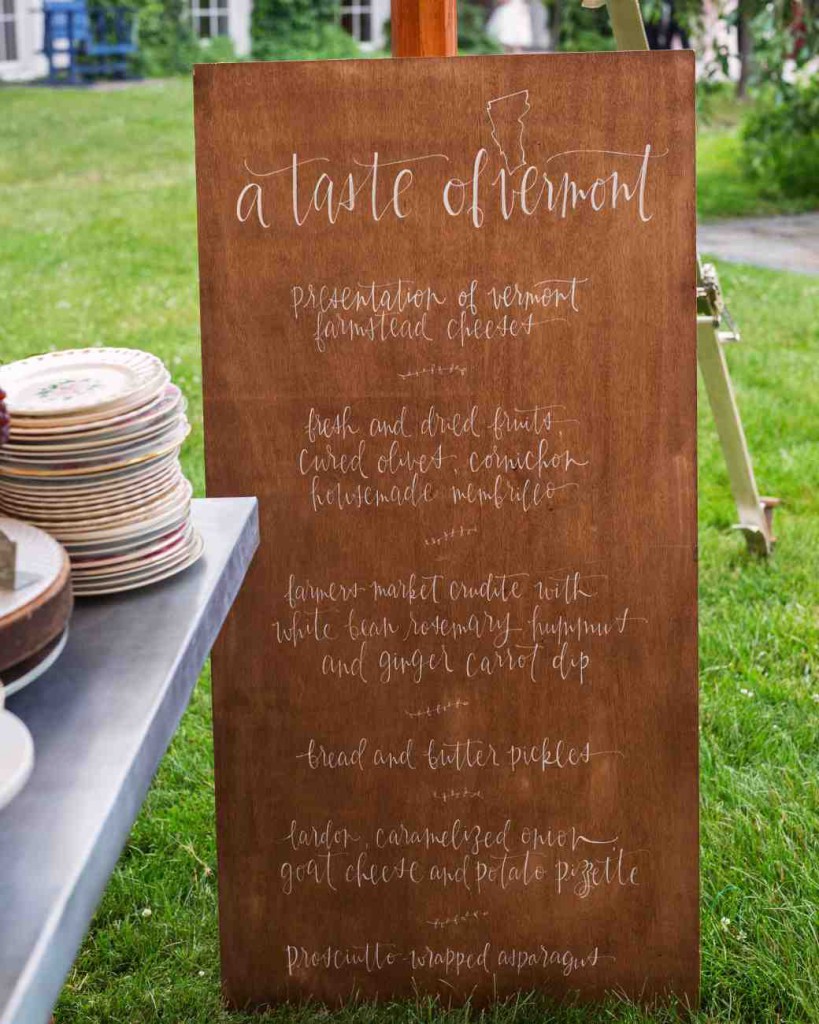 a taste of vermont
presentation of vermont
farmstead cheeses
fresh and dried fruits,
cured olives, cornichon
housemade membrillo
farmers market crudite with
white bean rosemary hummus
and ginger carrot dip
bread and butter pickles
lardon, caramelized onion,
goat cheese and potato pizzette
prosciutto-wrapped asparagus